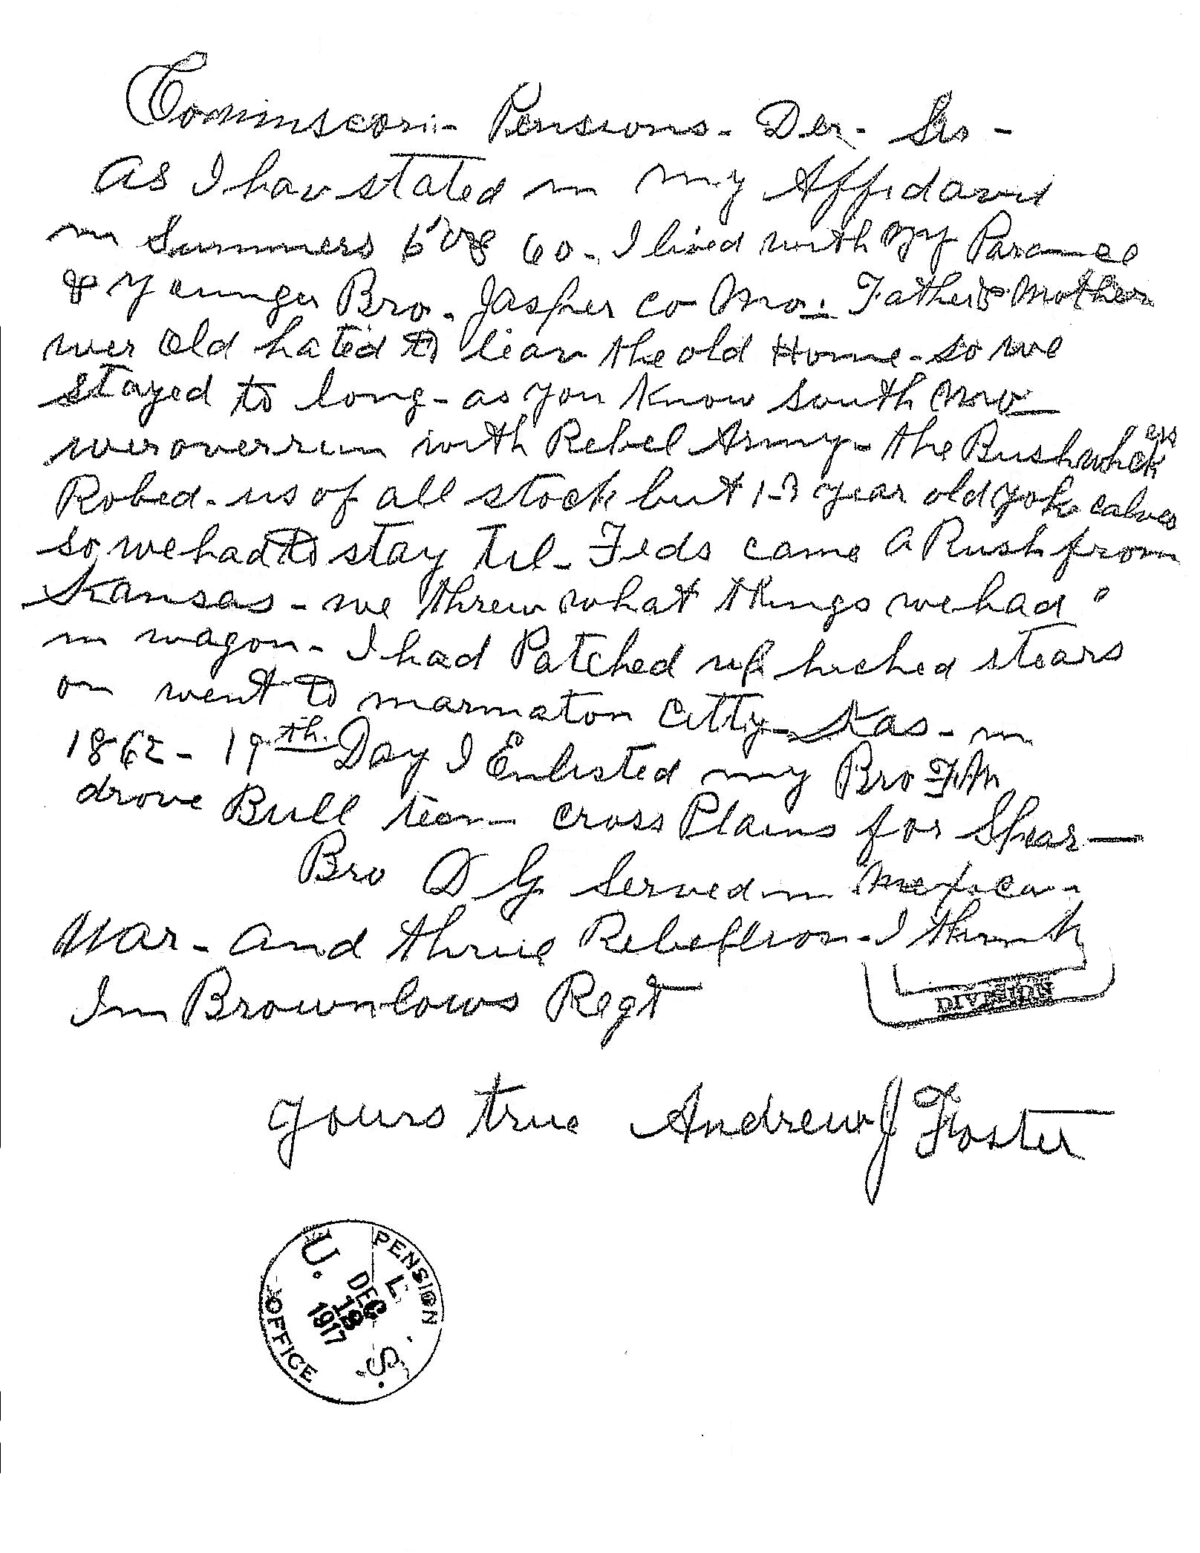 Comminscori - Pensions - Der - Sir -
As I hav stated in my Affidavit
in Summers 60 - I lived with My
& Younger Bro - Jasper co Mo: Father & Mother
wer old hated to leav the old Home - so we
stayed to long - as you Know South Mo
wer overrun with Rebel Army - the Bushwhckers
Robed - us of all stock but 1-3 year old yok calves
so we had to stay til - Feds came a Rush from
Kansas - we threw what things we had
in wagon - I had Patched up hiched stears
on went to marmaton Citty - Kas - in
1862 - 19th Day I Enlisted my Bro F M
drove Bull team cross Plains for Shear -
Bro D G Served in Mexican
War - and thrue Rebellion - I think
In Brownlows Regt
DIVISION
yours true Andrew J Foster
U. S. PENSION OFFICE
L
DEC
18
1917